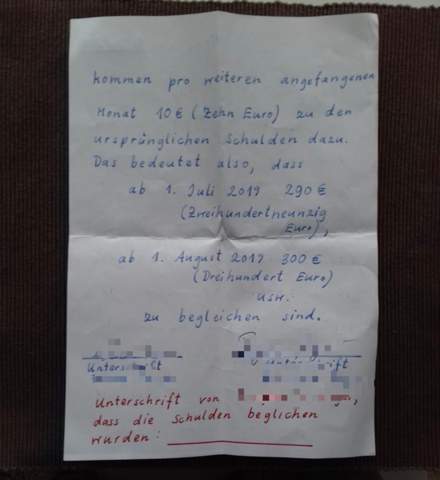 kommen pro weiteren angefangenen
Monat 10€ (Zehn Euro) zu den
ursprünglichen Schulden dazu.
Das bedeutet also, dass
ab 1. Juli 2019 290 €
(Zweihundertneunzig
Euro),
ab 1. August 2019 300 €
(Dreihundert Euro)
usw.
zu begleichen sind.
Unterschrift
Unterschrift von
dass die Schulden beglichen
wurden: